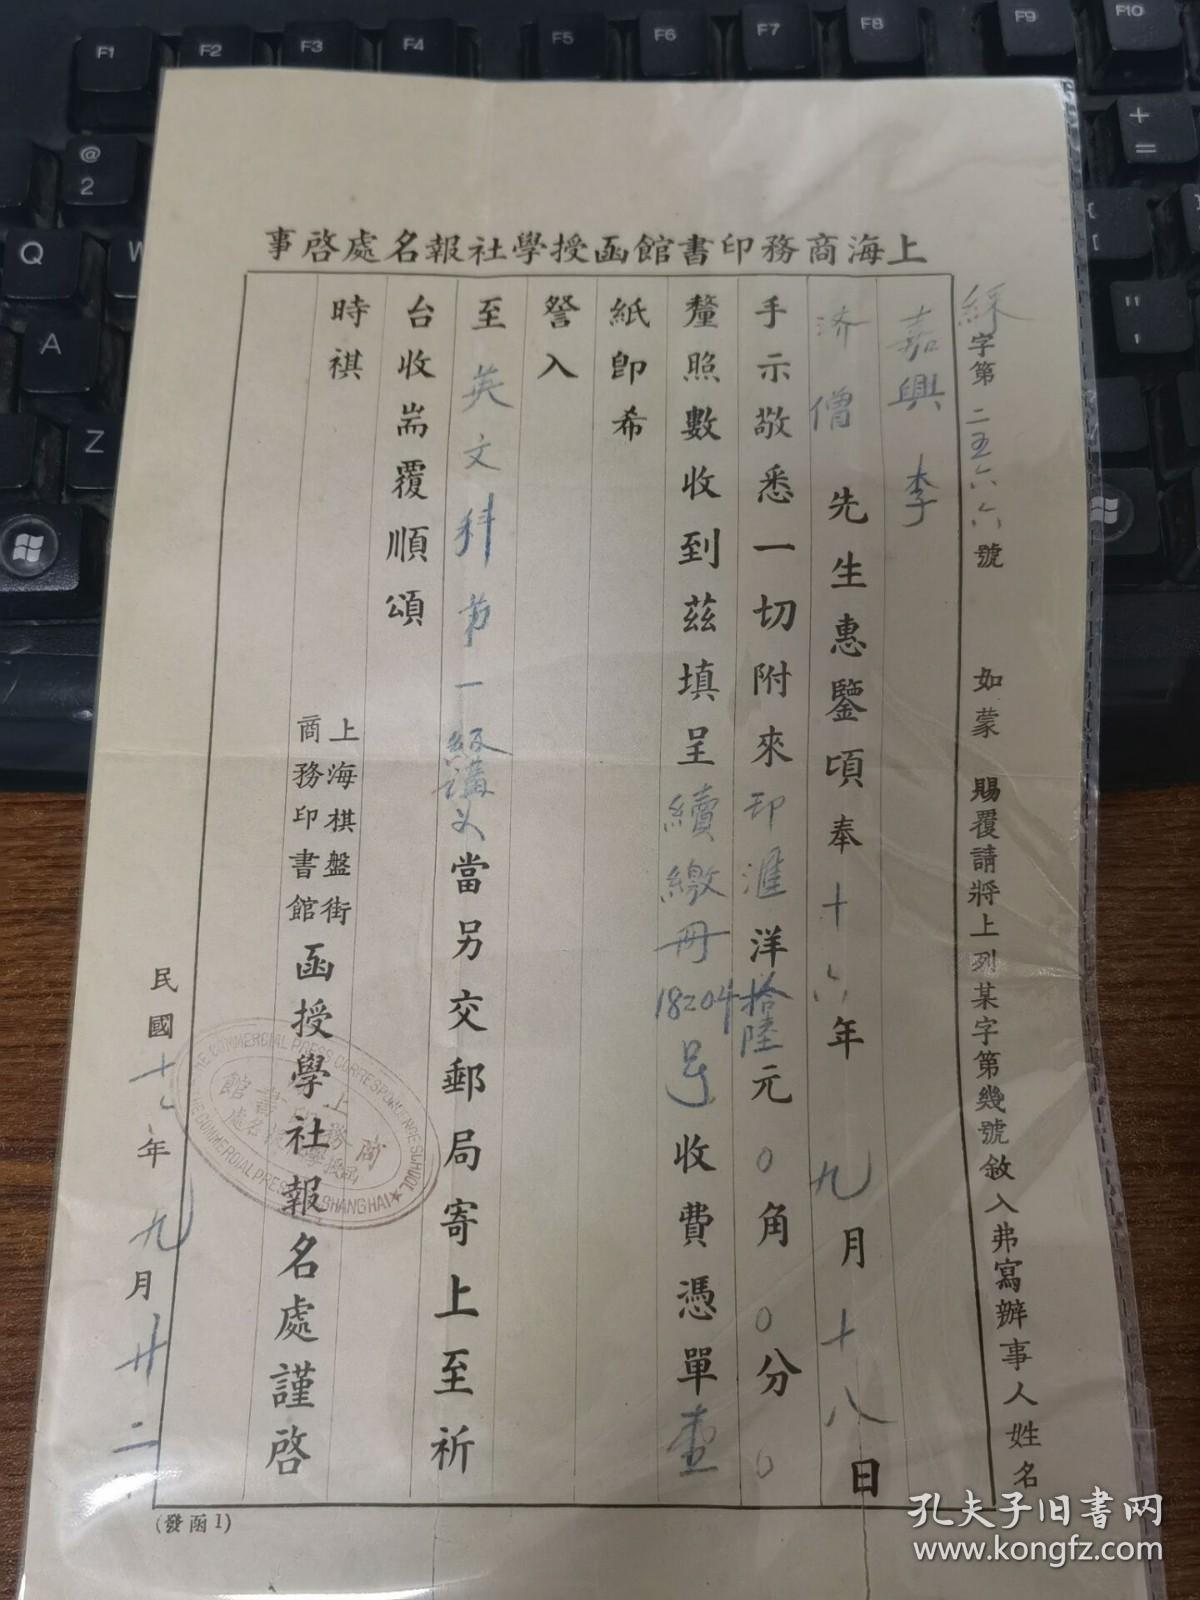 上海商務印書館函授學社報名處啓事
綵字第二五六六號 如蒙 賜覆請將上列某字第幾號敘入弗寫辦事人姓名
嘉興 李
济僧先生惠鑒頃奉十六年九月十八日
手示敬悉一切附來印滙洋拾陸元0角0分0
釐照數收到茲填呈續繳册18204号收費憑單壹
紙卽希
詧入
至英文科第一級講义當另交郵局寄上至祈
台收耑覆順頌
時祺
上海棋盤街
商務印書館
函授學社報名處謹啓
民國十六年九月廿二
(發函1)
THE COMMERCIAL PRESS CORRESPONDENCE SCHOOL
THE COMMERCIAL PRESS SHANGHAI
F1
F2
F3
F4
F5
F6
F7
F8
F9
F10
@
2
+
=
Q
A
Z
孔夫子旧书网
www.kongfz.com